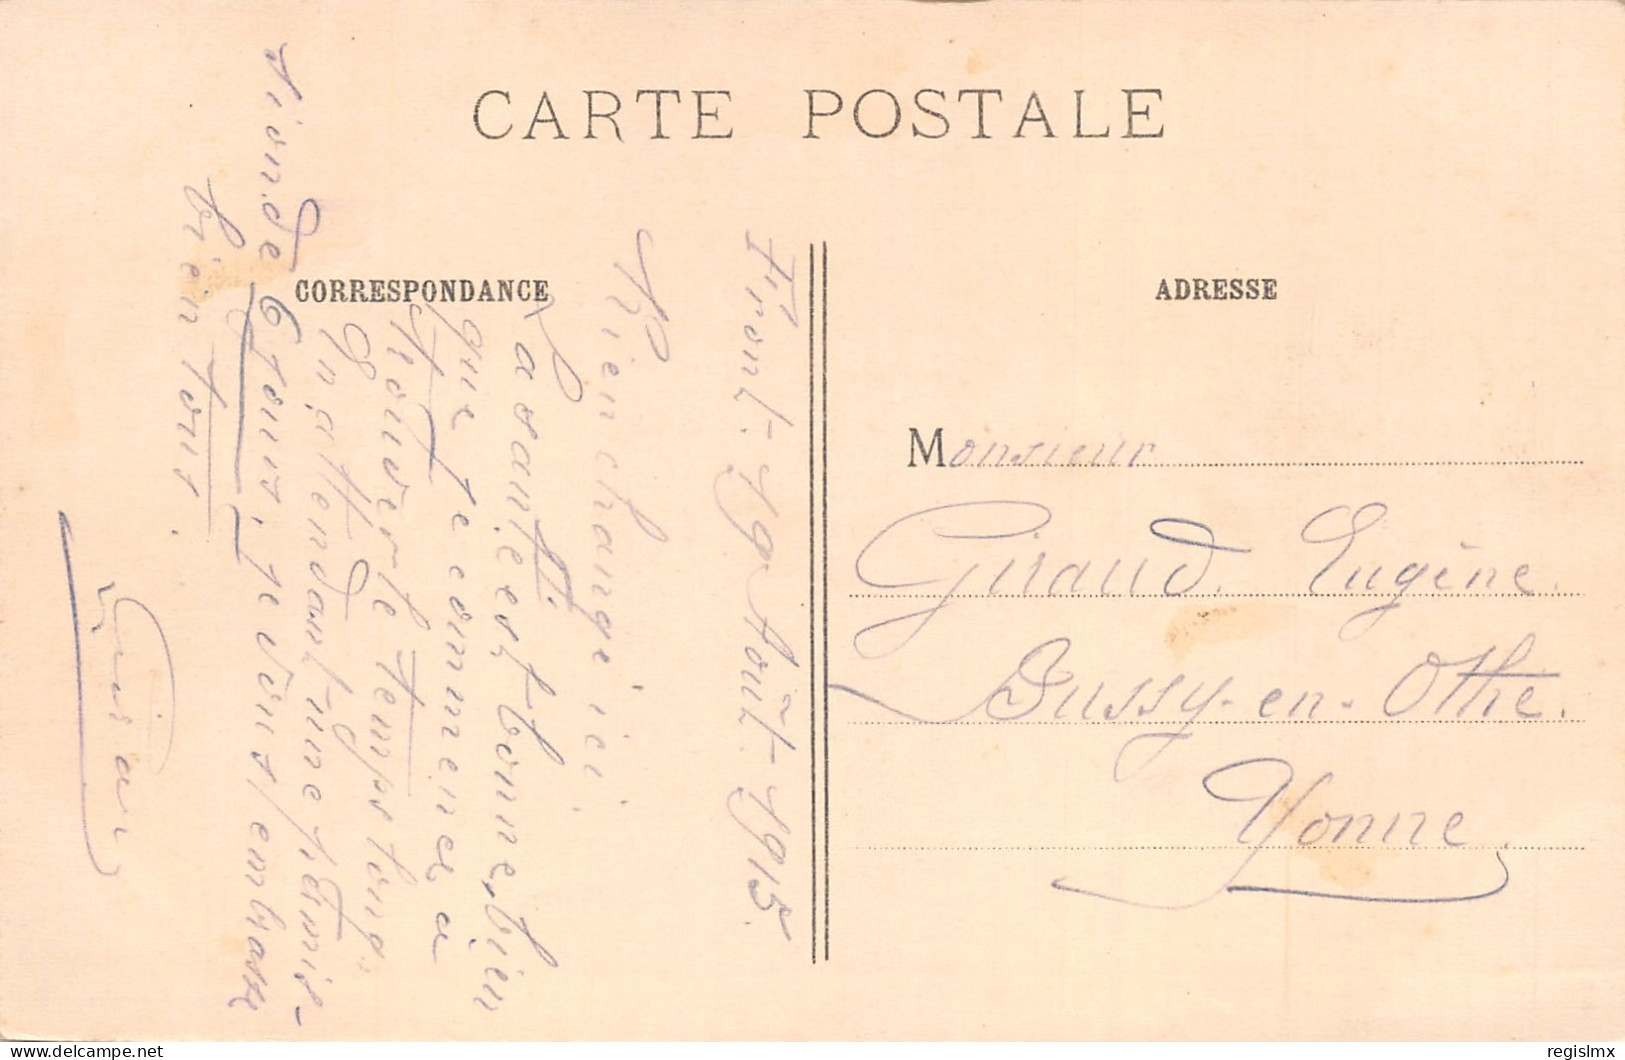 CARTE POSTALE
CORRESPONDANCE
ADRESSE
Front. 19 Août 1915.
Rien changé ici
La santé est bonne, bien
que je commence à
trouver le temps long
En attendant une permis-
sion de 6 jours, je vous embrasse
bien tous.
Monsieur
Giraud. Eugène.
Bussy-en-Othe.
Yonne.
regislmx